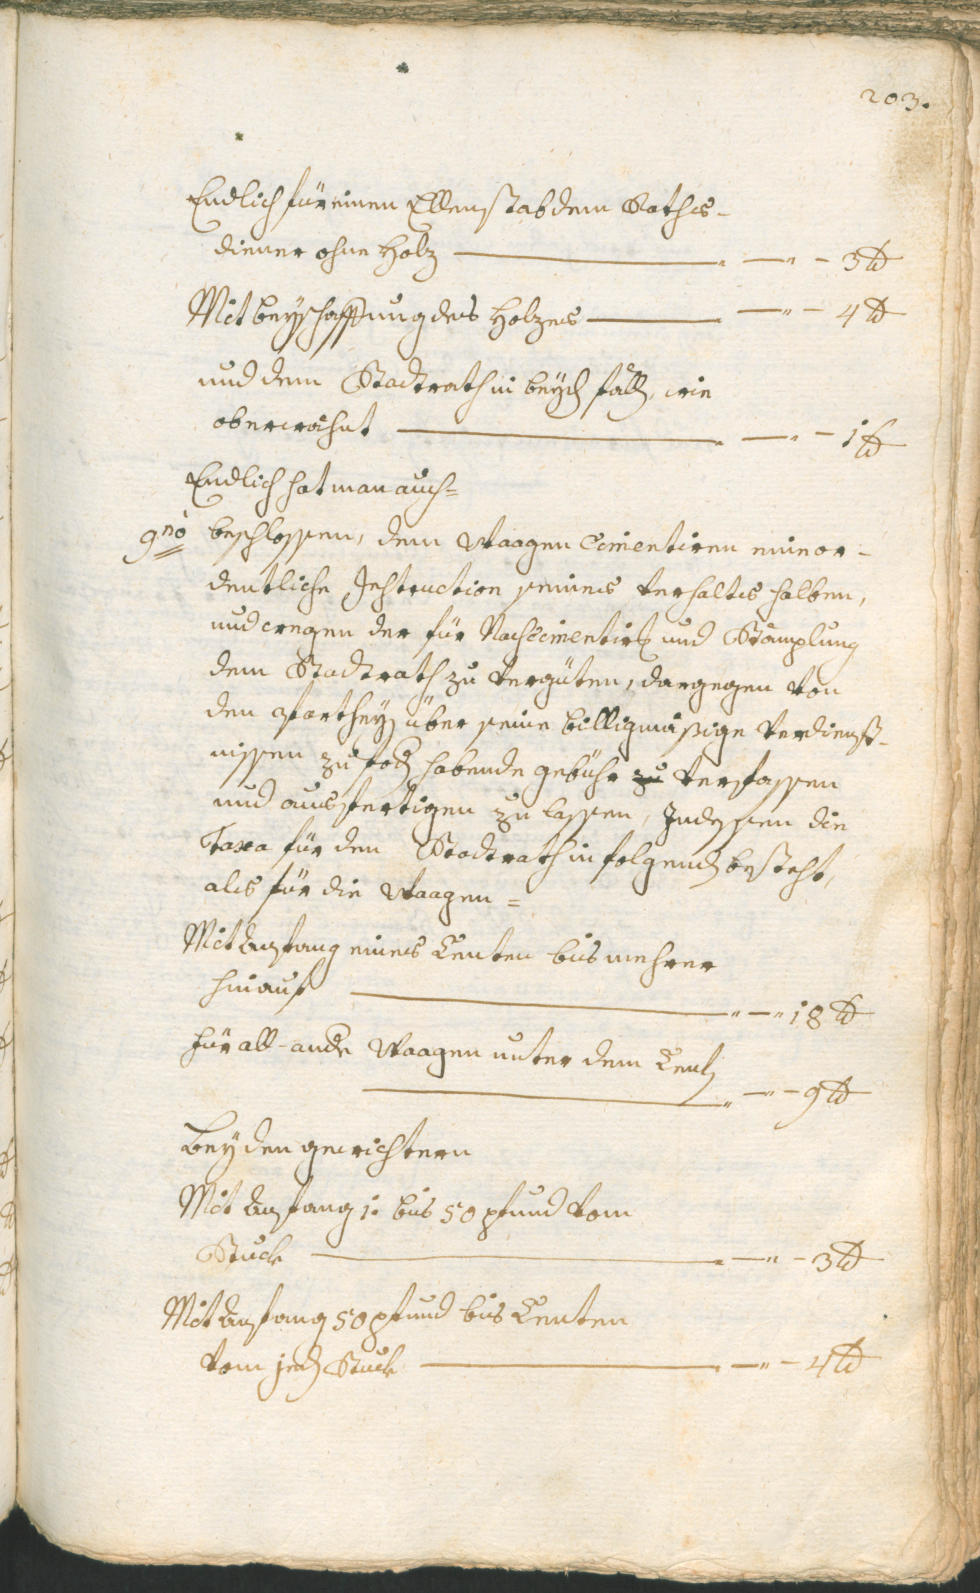 203.
Endlich für einen Ellenstab dem Raths-
diener ohne Holz — " — " — 3 ₰
Mit beyschaffung des Holzes — " — " — 4 ₰
und dem Stadtrath in beyd fälln, wie
oberwähnt — " — " — 1 ₰
Endlich hat man auch=
9no beschlossen, dem Waagen Cimentirer ein or-
dentliche Instruction seines Verhaltes halben,
und wegen der für Nachcimentirn und Stämplung
dem Stadtrath zu vergüten, dargegen von
den Partheyen über seine billigmäßige Verdienst-
nissen zu fodern habende gebühr zu verfassen
und ausfertigen zu lassen, Indessen die
Taxa für den Stadtrath in folgenden besteht,
als für die Waagen =
Mit Anfang eines Centen bis mehrer
hinauf — " — " 18 ₰
Für all-andre Waagen unter dem Centen
— " — " — 9 ₰
Bey den gewichtern
Mit Anfang 1. bis 50 pfund vom
Stuck — " — " — 3 ₰
Mit Anfang 50 pfund bis Centen
vom jeden Stuck — " — " — 4 ₰